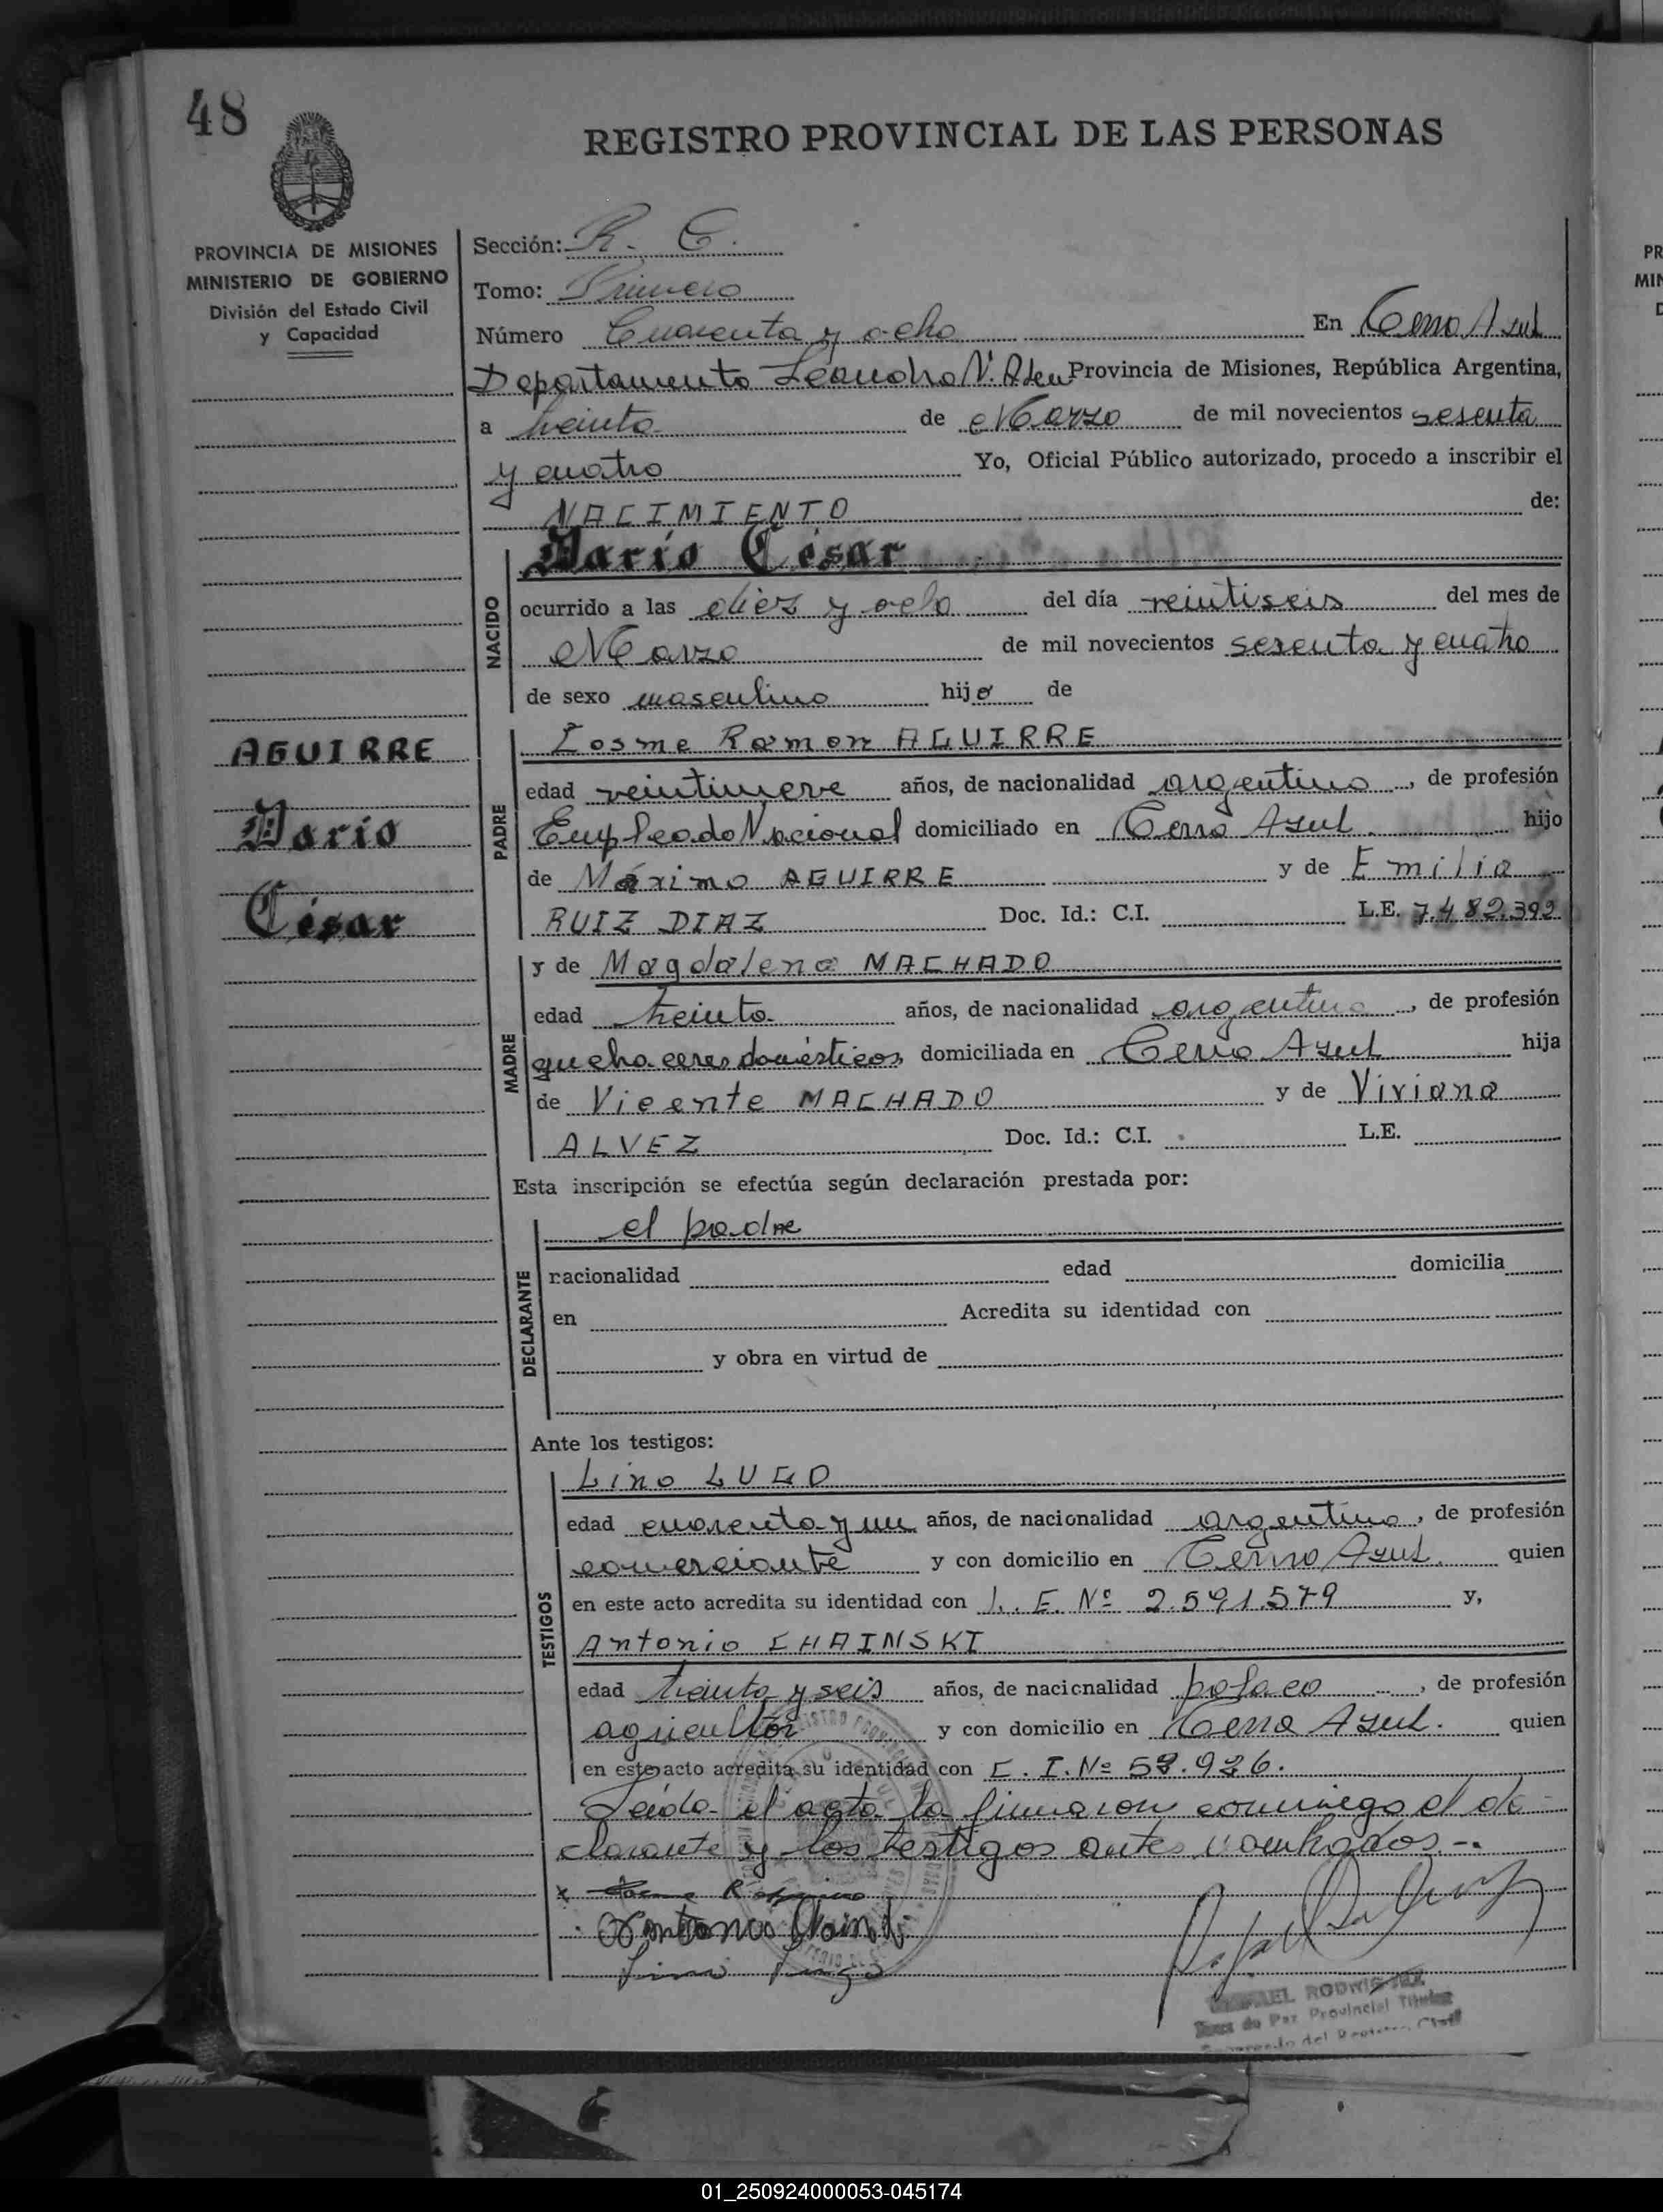 48
REGISTRO PROVINCIAL DE LAS PERSONAS
PROVINCIA DE MISIONES
MINISTERIO DE GOBIERNO
División del Estado Civil
y Capacidad
Sección: R. C.
Tomo: Primero
Número Cuarenta y ocho En Cerro Azul
Departamento Leandro N. Alem Provincia de Misiones, República Argentina,
a treinta de Marzo de mil novecientos sesenta
y cuatro Yo, Oficial Público autorizado, procedo a inscribir el
NACIMIENTO de:
NACIDO
Darío César
ocurrido a las diez y ocho del día veintiseis del mes de
Marzo de mil novecientos sesenta y cuatro
de sexo masculino hijo de
AGUIRRE
Darío
César
PADRE
Cosme Ramon AGUIRRE
edad veintinueve años, de nacionalidad argentino, de profesión
Empleado Nacional domiciliado en Cerro Azul. hijo
de Máximo AGUIRRE y de Emilia
RUIZ DIAZ Doc. Id.: C.I. L.E. 7.482.392
MADRE
y de Magdalena MACHADO
edad treinta años, de nacionalidad argentina, de profesión
quehaceres domésticos domiciliada en Cerro Azul hija
de Vicente MACHADO y de Viviana
ALVEZ Doc. Id.: C.I. L.E.
Esta inscripción se efectúa según declaración prestada por:
DECLARANTE
el padre
nacionalidad edad domicilia
en Acredita su identidad con
y obra en virtud de
Ante los testigos:
TESTIGOS
Lino LUGO
edad cuarenta y un años, de nacionalidad argentino, de profesión
comerciante y con domicilio en Cerro Azul. quien
en este acto acredita su identidad con L. E. Nº 2.591.579 y,
Antonio CHAINSKI
edad treinta y seis años, de nacionalidad polaco, de profesión
agricultor y con domicilio en Cerro Azul. quien
en este acto acredita su identidad con C. I. Nº 58.926.
Leída el acta la firmaron conmigo el de-
clarante y los testigos antes nombrados.-.
Lino Lugo
RAFAEL
Juez de Paz Provincial Titular
del Registro Civil
01_250924000053-045174